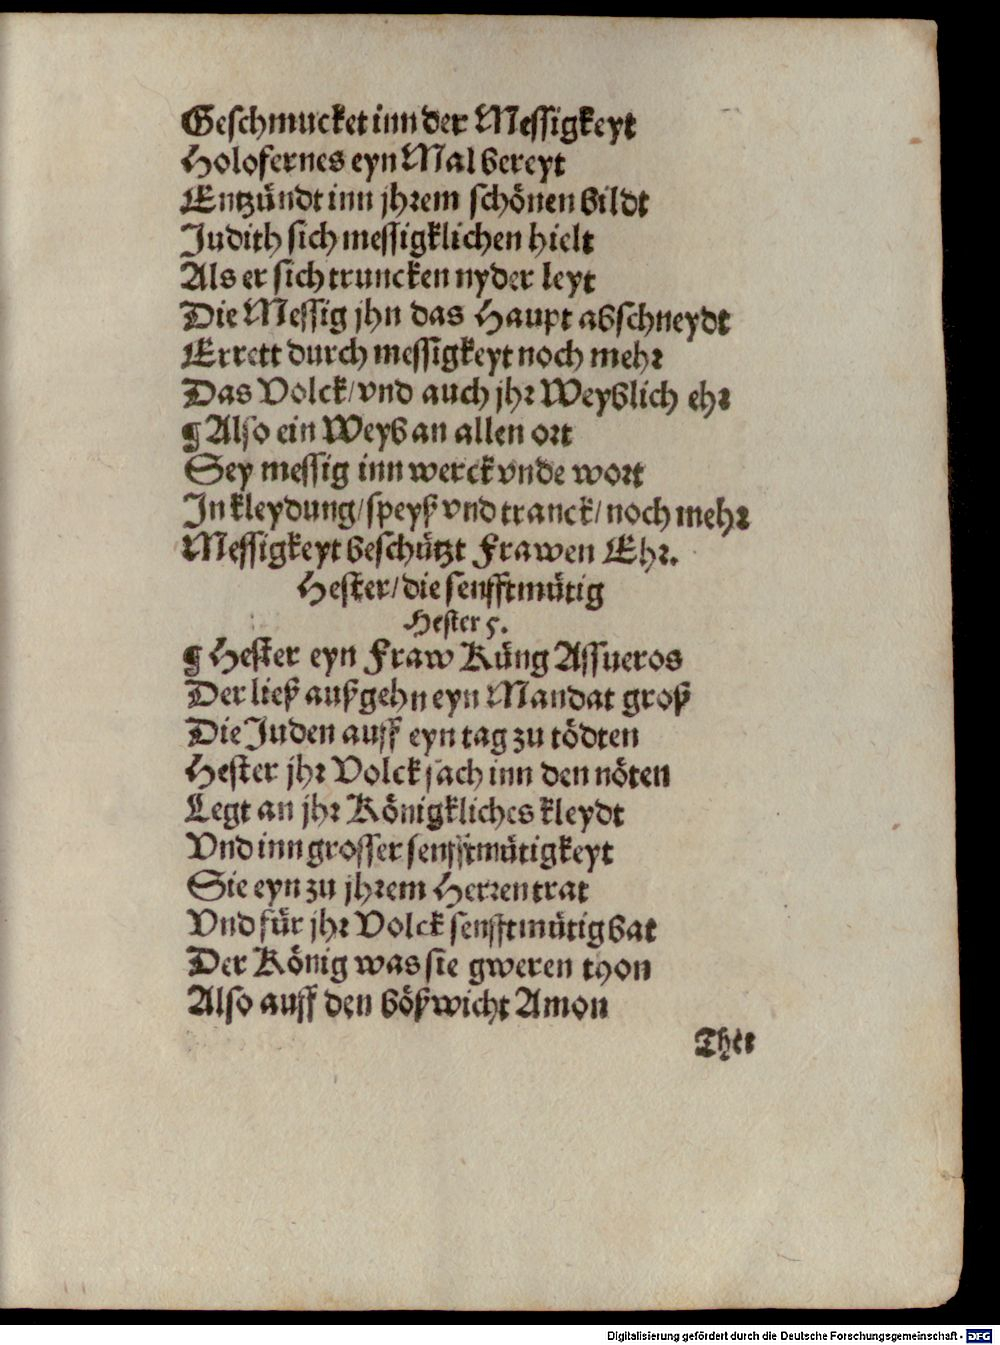 Geschmucket inn der Messigkeyt
Holofernes eyn Mal bereyt
Entzündt inn jhrem schönen bildt
Judith sich messigklichen hielt
Als er sich truncken nyder leyt
Die Messig jhn das Haupt abschneydt
Errett durch messigkeyt noch mehr
Das Volck/vnd auch jhr Weyblich ehr
¶ Also ein Weyb an allen ort
Sey messig inn werck vnde wort
In kleydung/speyß vnd tranck/noch mehr
Messigkeyt beschützt Frawen Ehr.
Hester/die senfftmütig
Hester 5.
¶ Hester eyn Fraw Küng Assueros
Der ließ außgehn eyn Mandat groß
Die Juden auff eyn tag zu tödten
Hester jhr Volck sach inn den nöten
Legt an jhr Königkliches kleydt
Vnd inn grosser senfftmütigkeyt
Sie eyn zu jhrem Herren trat
Vnd für jhr Volck senfftmütig bat
Der König was sie gweren thon
Also auff den bößwicht Amon
Thet
Digitalisierung gefördert durch die Deutsche Forschungsgemeinschaft - DFG